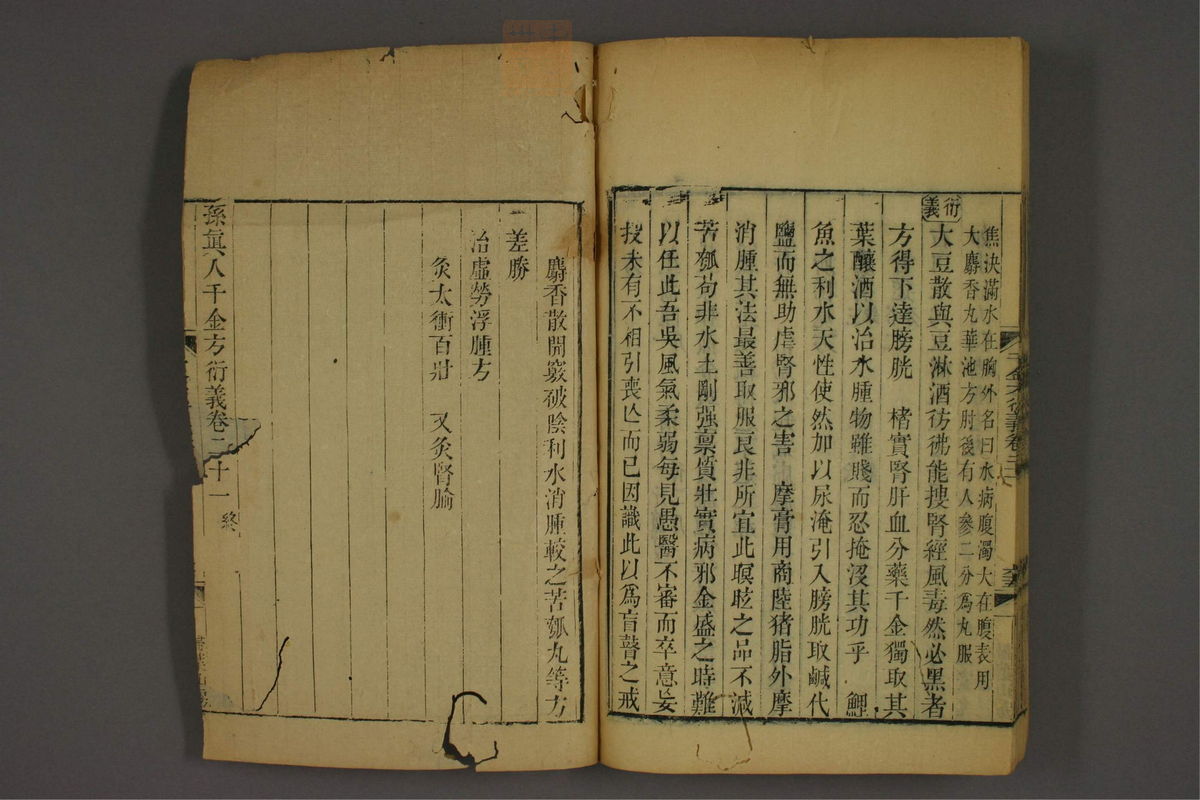 焦決滿水在胸外名曰水病腹濁大在腹表用
大麝香丸華池方肘後有人參二分爲丸服
衍義
大豆散與豆淋酒彷彿能摟腎經風毒然必黑者
方得下達膀胱 楮實腎肝血分藥千金獨取其
葉釀酒以治水腫物雖賤而忍掩沒其功乎 鯉
魚之利水天性使然加以尿淹引入膀胱取鹹代
鹽而無助虐腎邪之害 摩膏用商陸猪脂外摩
消腫其法最善取服良非所宜此暝眩之品不減
苦瓠茍非水土剛强禀質壯實病邪全盛之時難
以任此吾吳風氣柔弱每見愚醫不審而卒意妄
投未有不相引喪亡而已因識此以爲盲瞽之戒
千金方衍義卷二
麝香散開竅破陰利水消腫較之苦瓠丸等方
差勝
治虛勞浮腫方
灸太衝百壯 又灸腎腧
孫眞人千金方衍義卷二十一 終